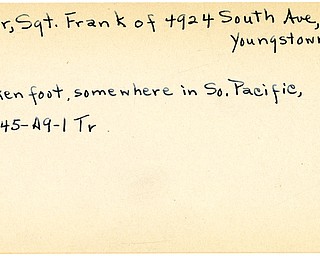 r, Sgt. Frank of 4924 South Ave,
Youngstown
ken foot, somewhere in So. Pacific,
45-A9-1 Tr